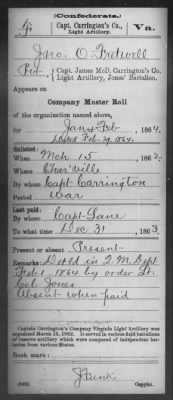 (Confederate.)
F Capt. Carrington's Co., Light Artillery. Va.
Jno. O. Fretwell
Pvt, Capt. James McD. Carrington's Co. Light Artillery, Jones' Battalion.
Appears on
Company Muster Roll
of the organization named above,
for Jany & Feb, 1864.
dated Feb. 29, 1864.
Enlisted:
When Mch 15, 186
Where Char'ville
By whom Capt. Carrington
Period War
Last paid:
By whom Capt. Lane
To what time Dec 31, 1863.
Present or absent Present
Remarks: Detld in Q. M. Dept
Feb. 1. 1864 by order Lt.
Col. Jones
Absent when paid
Captain Carrington's Company Virginia Light Artillery was
organized March 15, 1862. It served in various field battalions
of reserve artillery which were composed of independent bat-
teries from various States.
Book mark:
(642) Copyist.